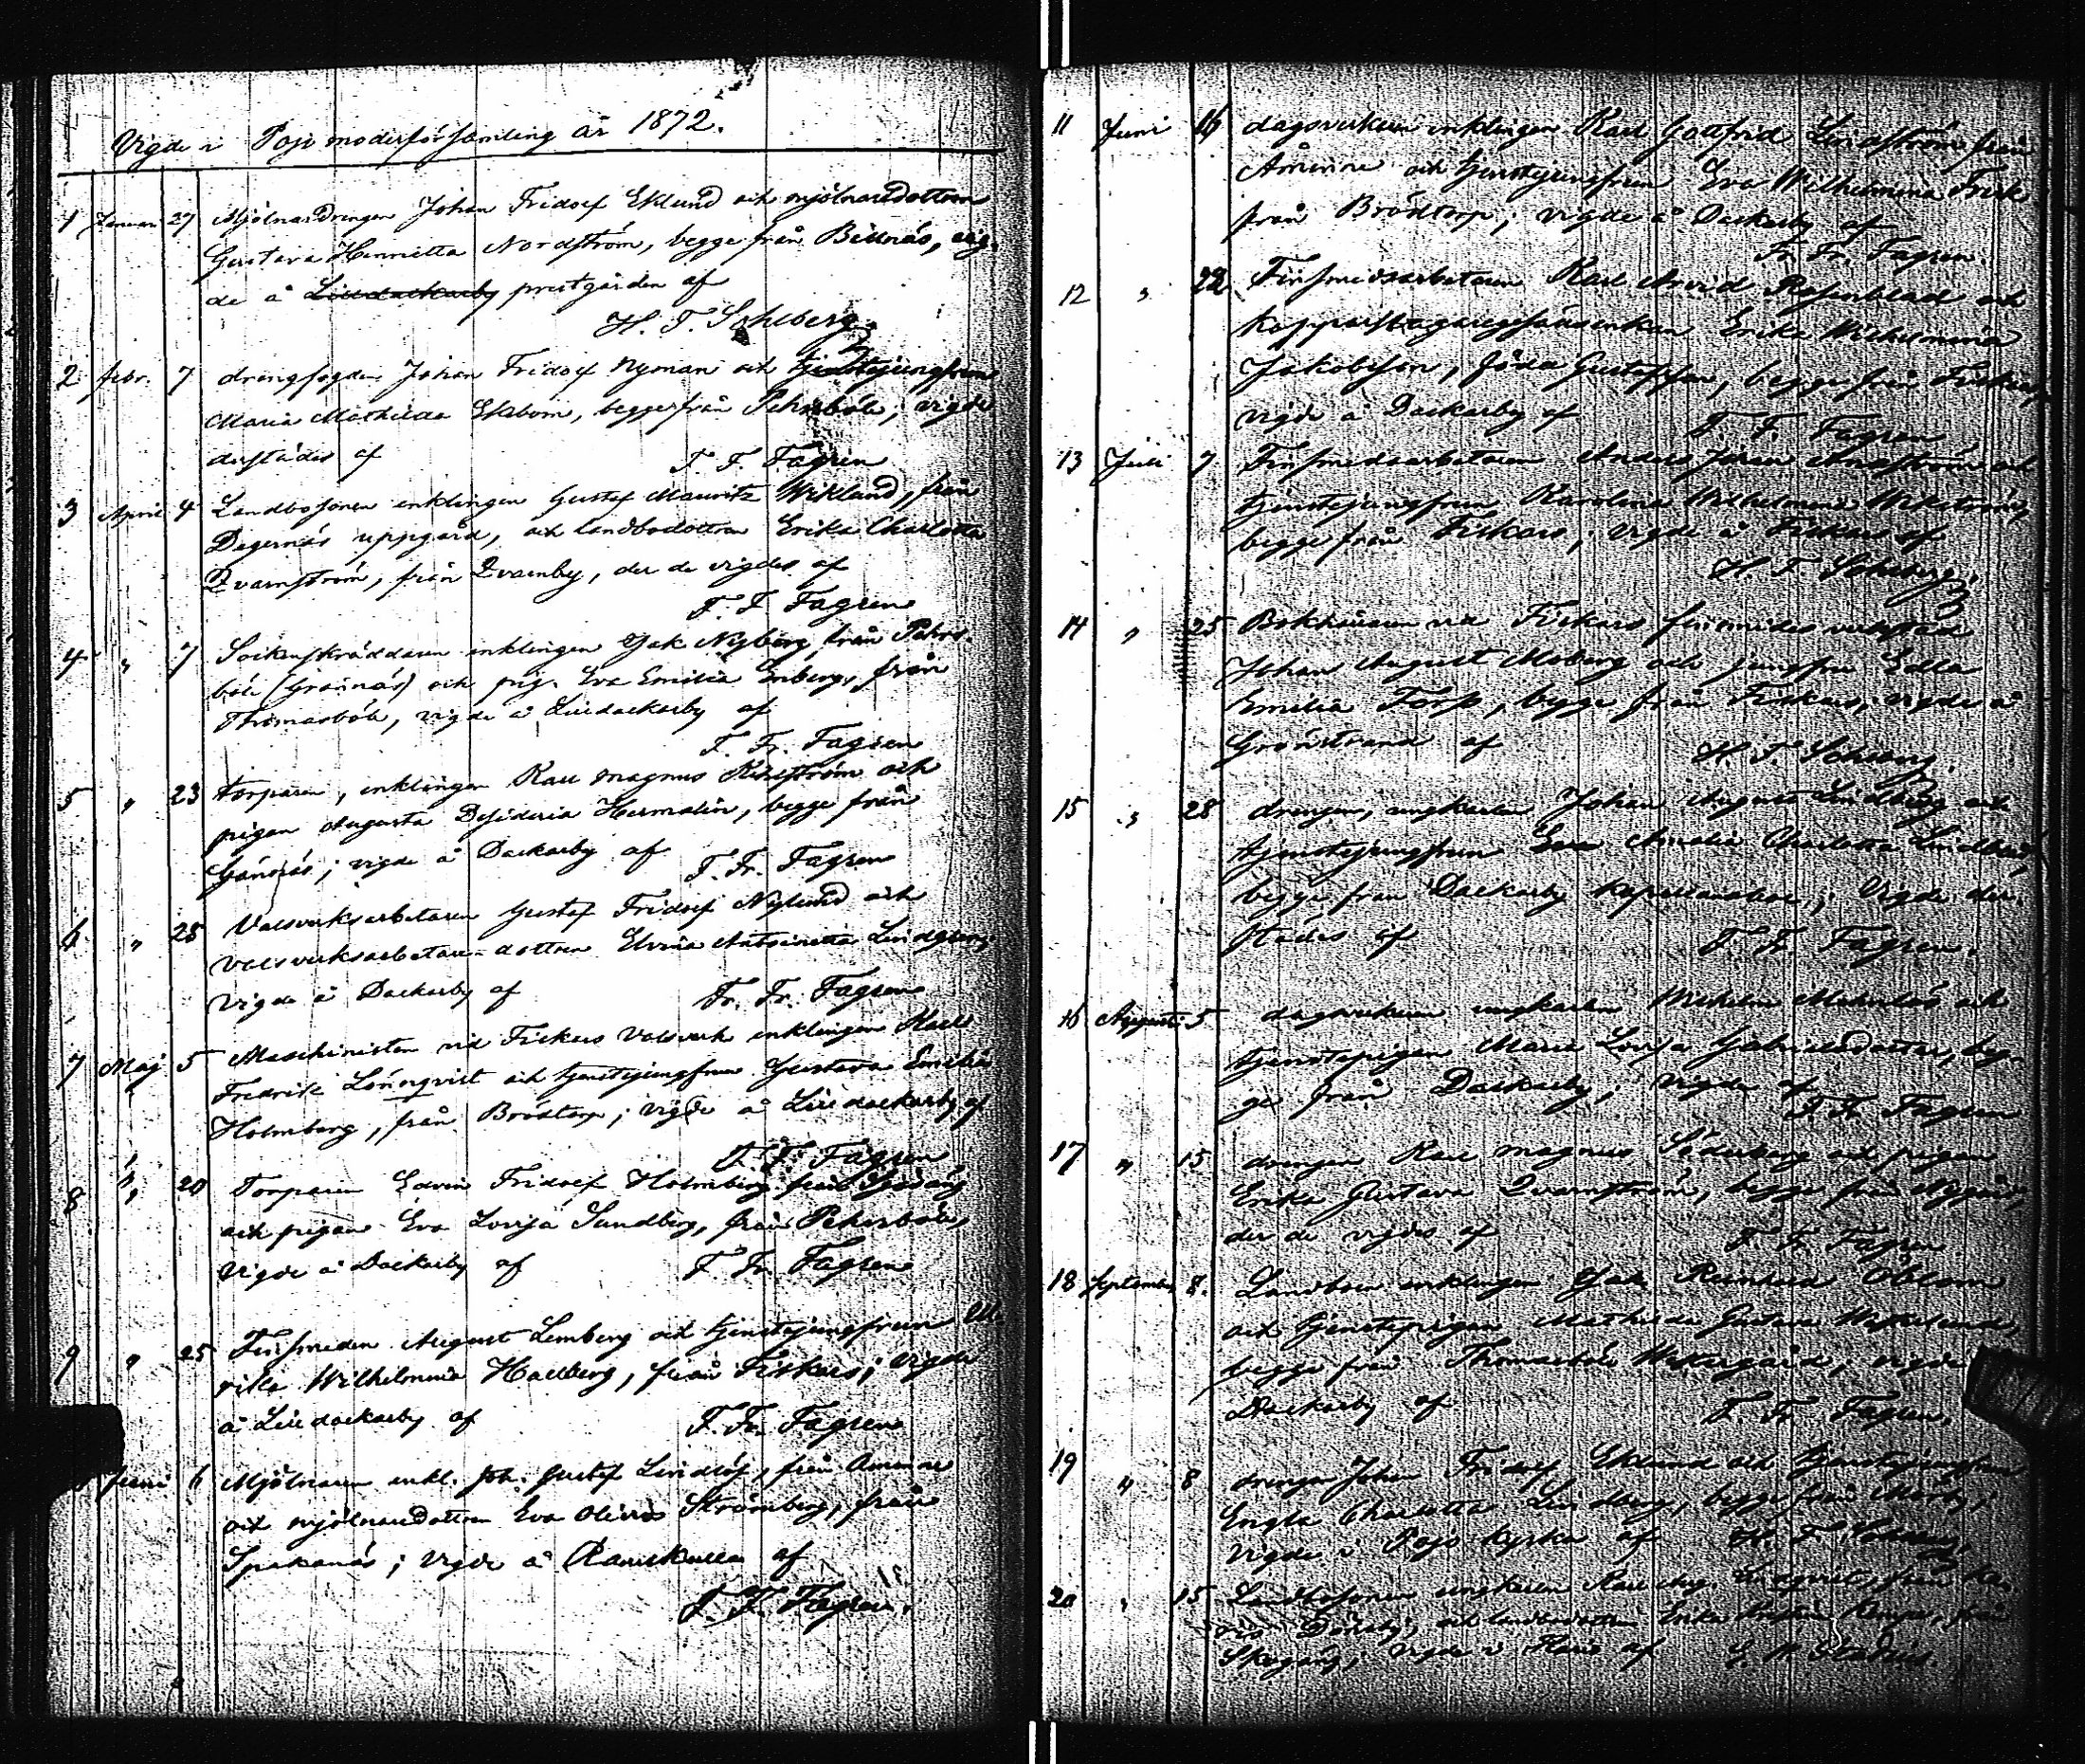 Vigde i Pojo moderförsamling år 1872.
1 Januari 27 Mjölnardrengen Johan Fridolf Eklund och mjölnaredottren
Gustava Henrietta Nordström, begge från Billnäs, vig-
de å Lilldackarby prestgården af
H. F. Sohlberg.
2 febr. 7 drengfogden Johan Fridolf Nyman och tjenstejungfrun
Maria Mathilda Ekbom, begge från Pehrsböle; vigde
derstädes af
F. F. Fagren
3 April 4 Landbosonen enklingen Gustaf Mauritz Wiklund, från
Degernäs uppgård, och landbodottren Erika Charlotta
Qvarnström, från Qvarnby, der de vigdes af
F. F. Fagren
4 " 7 Sockenskräddaren enklingen Isak Nyberg från Pehrs-
böle (Grännäs) och pig. Eva Emilia Enberg, från
Thomasböle, vigde å Lilldackarby af
F. Fr. Fagren
5 " 23 torparen, enklingen Karl Magnus Kihlström och
pigan Augusta Desideria Hermalin, begge från
Gännäs; vigde å Dackarby af F. Fr. Fagren
6 " 28 Valsverksarbetaren Gustaf Fridolf Nylund och
valsverksarbetare-dottren Elvira Antoinetta Lindberg
vigde å Dackarby af Fr. Fr. Fagren
7 Maj 5 Maschinisten vid Fiskars Valsverk enklingen Karl
Fredrik Lönnqvist och tjenstejungfrun Gustava Emilia
Holmberg, från Brödtorp; vigde å Lilldackarby af
F. F. Fagren
8 " 20 Torparen Edvin Fridolf Holmberg från
och pigan Eva Lovisa Sundberg, från Pehrsböle,
vigde å Dackarby af F. Fr. Fagren
9 " 25 Finsmeden August Lemberg och tjenstejungfrun Ul-
rika Wilhelmina Hallberg, från Fiskars; vigde
å Lilldackarby af F. Fr. Fagren
Juni 6 Mjölnaren enkl. Joh. Gustaf Lindlöf, från Åminne
och mjölnaredottren Eva Olivia Strömberg, från
Spakanäs; vigde å Ramskulla af
F. F. Fagren.
11 Juni 16 dagsverkaren enklingen Karl Gottfrid Lindström från
Åminne och tjenstejungfrun Eva Wilhelmina Frisk
från Brödtorp; vigde å Dackarby af
Fr. Fr. Fagren.
12 " 22 Finsmedsarbetaren Karl Arvid Rosenblad och
kopparslagaregesällsenkan Erika Wilhelmina
Jakobsson, född Gustafsson, begge från Fiskars,
vigde å Dackarby af F. F. Fagren
13 Juli 7 Finsmedsarbetaren Anders Johan och
tjenstejungfrun Karolina Wilhelmina Wikström,
begge från Fiskars; vigde å Fiskars af
H. F. Sohlberg.
14 " 25 Bokhållaren vid Fiskars finsmides verkstad
Johan August Moberg och jungfru Edla
Emilia Torp, begge från Fiskars, vigde å
Grönstrand af H. F. Sohlberg.
15 " 28 drengen, ungkarlen Johan August Lindberg och
tjenstejungfrun Amalia Charlotta
begge från Dackarby kapellansbol; vigde der-
städes af F. F. Fagren.
16 Augusti 5 dagsverkaren ungkarlen Wilhelm och
tjenstepigan Maria Lovisa Gabrielsdotter, beg-
ge från Dackarby; vigde af
F. Fr. Fagren
17 " 15 drengen Karl Magnus Söderberg och pigan
Erika Gustava Qvarnström, begge från
der de vigdes af F. Fr. Fagren
18 September 8. Landbon enklingen Isak Reinhold Öblom
och tjenstepigan Mathilda Gustava
begge från Thomasböle Westergård, vigde
Dackarby af F. Fr. Fagren.
19 " 8 drengen Johan Fridolf Eklund och tjenstejungfrun
Engla Charlotta Lindberg, begge från
vigde i Pojo kyrka af H. F. Sohlberg.
20 " 15 Landbosonen ungkarlen Karl Aug. från
och landbodottren Erika från
vigde i Karis af G. W. Stadius.